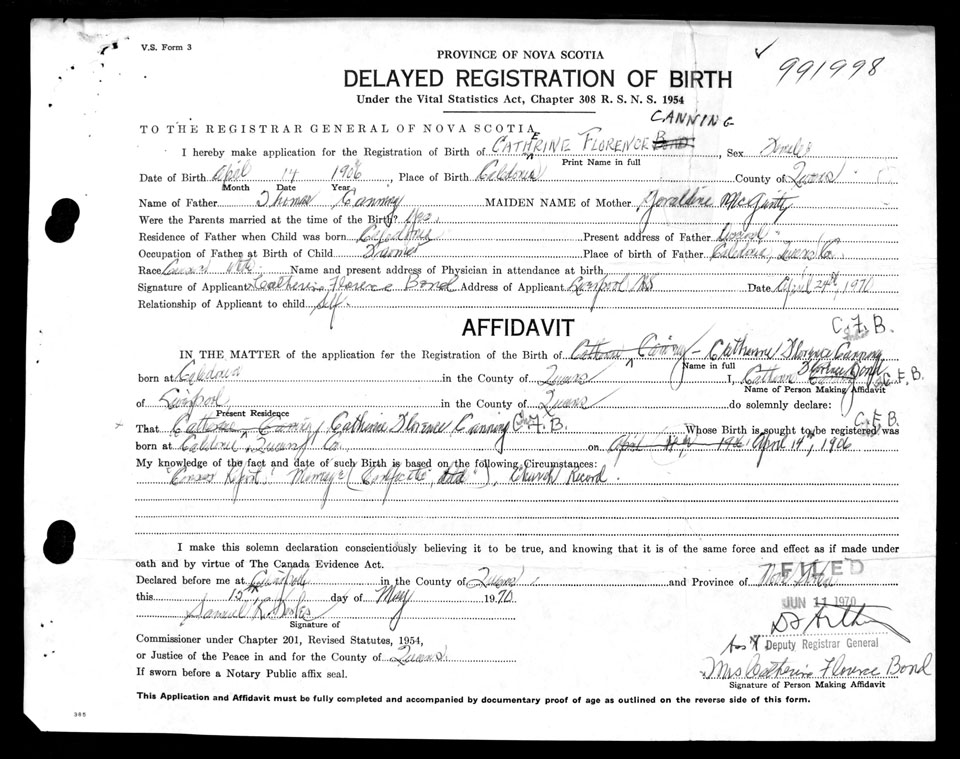 V.S. Form 3
PROVINCE OF NOVA SCOTIA
991998
DELAYED REGISTRATION OF BIRTH
Under the Vital Statistics Act, Chapter 308 R. S. N. S. 1954
CANNING
TO THE REGISTRAR GENERAL OF NOVA SCOTIA
I hereby make application for the Registration of Birth of CATHERINE FLORENCE BOND, Sex Female
Print Name in full
Date of Birth April 14 1906, Place of Birth Caledonia County of Queens
Month Date Year
Name of Father Thomas Canning MAIDEN NAME of Mother Geraldine McGinty
Were the Parents married at the time of the Birth? Yes.
Residence of Father when Child was born Caledonia Present address of Father
Occupation of Father at Birth of Child Place of birth of Father Caledonia, Queens Co.
Race Name and present address of Physician in attendance at birth
Signature of Applicant Catherine Florence Bond Address of Applicant Liverpool NS Date April 24th, 1970
Relationship of Applicant to child Self
AFFIDAVIT
C. F. B.
IN THE MATTER of the application for the Registration of Birth of Canning - Catherine Florence Canning
Name in full
born at Caledonia in the County of Queens I, Catherine Florence Bond C. F. B.
Name of Person Making Affidavit
of Liverpool in the County of Queens do solemnly declare:
Present Residence
That Catherine Florence Canning C. F. B. Whose Birth is sought to be registered was C. F. B.
born at Caledonia Queens Co. on April 14th, 1906
My knowledge of the fact and date of such Birth is based on the following Circumstances:
Church Record.
I make this solemn declaration conscientiously believing it to be true, and knowing that it is of the same force and effect as if made under
oath and by virtue of The Canada Evidence Act.
Declared before me at Liverpool in the County of Queens and Province of Nova Scotia
FILED
this 12th day of May 1970
JUN 11 1970
Samuel
Signature of
Commissioner under Chapter 201, Revised Statutes, 1954,
Deputy Registrar General
or Justice of the Peace in and for the County of Queens
Mrs Catherine Florence Bond
If sworn before a Notary Public affix seal.
Signature of Person Making Affidavit
This Application and Affidavit must be fully completed and accompanied by documentary proof of age as outlined on the reverse side of this form.